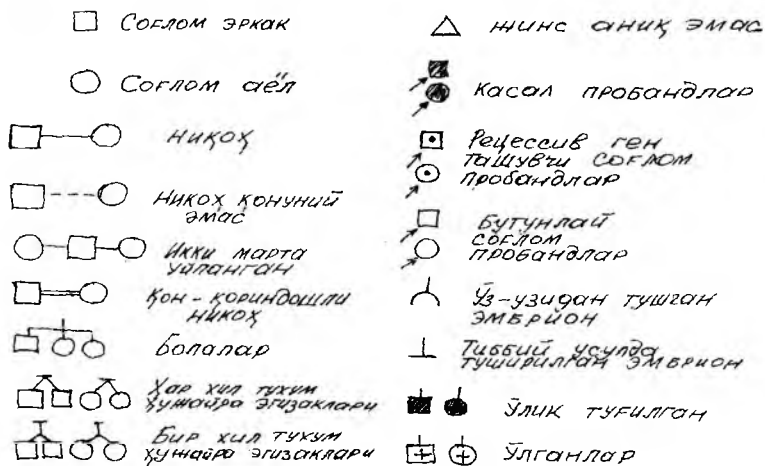 Соғлом эркак
Соғлом аёл
Никоҳ
Никоҳ қонуний
эмас
Икки марта
уйланган
Қон-кориндошли
никоҳ
Болалар
Ҳар хил тухум
ҳужайра эгизаклари
Бир хил тухум
ҳужайра эгизаклари
жинс аниқ эмас
касал пробандлар
Рецессив ген
ташувчи соғлом
пробандлар
Бутунлай
соғлом
пробандлар
Ўз-узидан тушган
эмбрион
Тиббий усулда
туширилган эмбрион
Ўлик туғилган
Ўлганлар